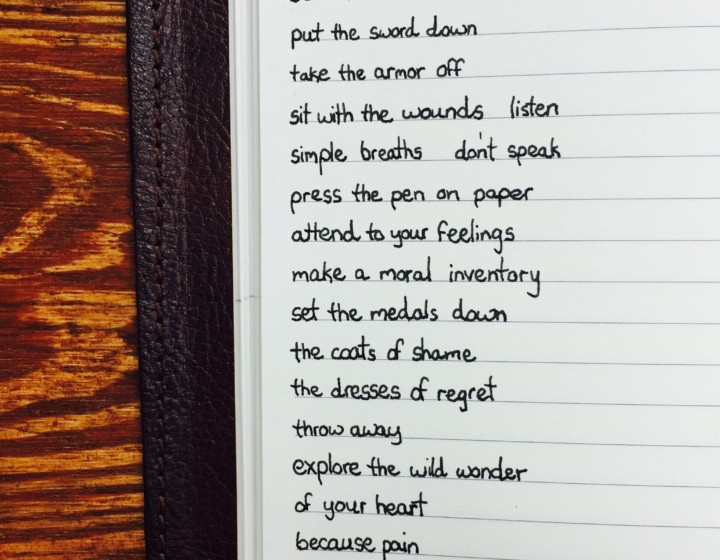 put the sword down
take the armor off
sit with the wounds listen
simple breaths don't speak
press the pen on paper
attend to your feelings
make a moral inventory
set the medals down
the coats of shame
the dresses of regret
throw away
explore the wild wonder
of your heart
because pain